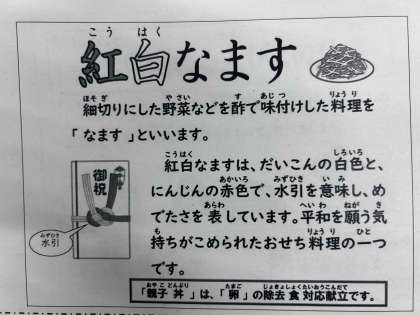 こう はく
紅白なます
ほそ ぎ やさい す あじ つ りょう り
細切りにした野菜などを酢で味付けした料理を
「なます」といいます。
こうはく しろいろ
紅白なますは、だいこんの白色と、
あかいろ みずひき い み
にんじんの赤色で、水引を意味し、め
あらわ へい わ ねが き
でたさを表しています。平和を願う気
も りょう り ひと
持ちがこめられたおせち料理の一つ
です。
御祝
みずひき
水引
おや こ どんぶり たまご じょきょしょくたいおうこんだて
「親子丼」は、「卵」の除去食対応献立です。